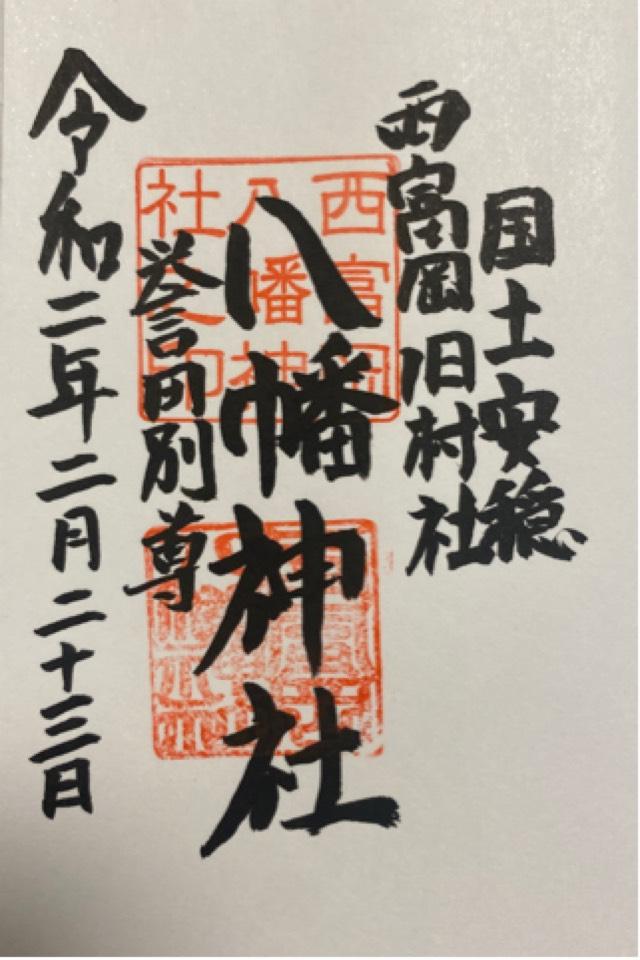 国土安穏
西富岡旧村社
八幡神社
誉田別尊
令和二年二月二十三日
西富岡
八幡神
社之印